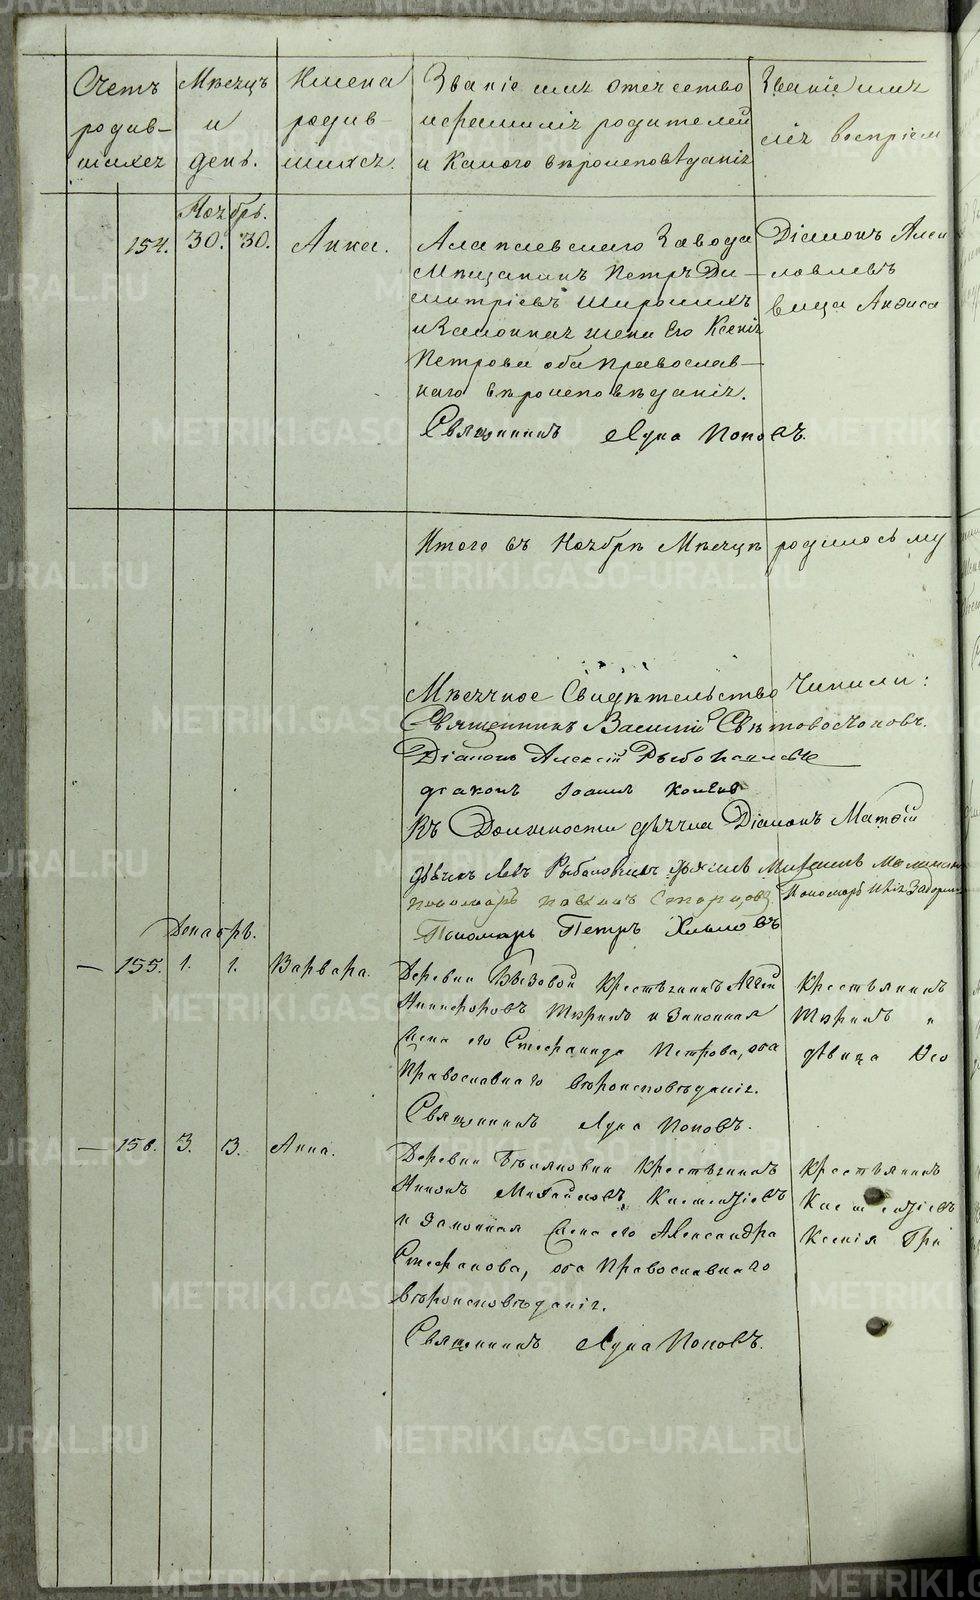 Счетъ
родив-
шихся
Мѣсяцъ
и
день.
Имена
родив-
шихся.
Званіе имя отечество
и фамилія родителей
и какого вѣроисповѣданія
Званіе имя
лія воспріем
Ноябрь.
154. 30. 30. Анна.
Алапаевскаго Завода
Мѣщанинъ Петръ Ди-
митріевъ Широкихъ
и Законная жена Его Ксенія
Петрова оба Православ-
наго вѣроисповѣданія.
Священникъ Лука Поповъ.
Діаконъ Алек
ловлевъ
вица Анфиса
Итого въ Ноябрѣ Мѣсяцѣ родилось му
Мѣсячное Свидѣтельство Чинили:
Священникъ Василій Свѣтовостоковъ.
Діаконъ Алексій Рыболовлевъ
діаконъ Іоаннъ
Въ Должности дьячка Діаконъ Матѳій
Пономарь Павлинъ
Пономарь Петръ Хлыновъ
Декабрь.
— 155. 1. 1. Варвара.
Деревни Бызовой Крестьянинъ Аггей
Никифоровъ Тюринъ и Законная
жена его Стефанида Петрова, оба
Православнаго вѣроисповѣданія.
Священникъ Лука Поповъ.
Крестьянинъ
Тюринъ и
дѣвица
— 156. 3. 3. Анна.
Деревни Крестьянинъ
Никонъ Михайловъ
и Законная жена его Александра
Стефанова, оба Православнаго
вѣроисповѣданія.
Священникъ Лука Поповъ.
Крестьянинъ
Ксенія Гри
METRIKI.GASO-URAL.RU